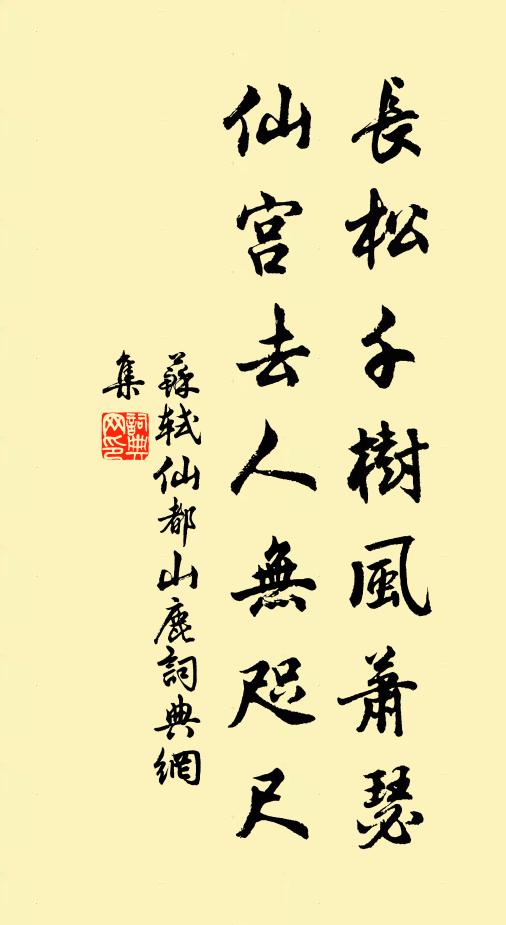 長松千樹風蕭瑟
仙宮去人無咫尺
蘇軾仙都山鹿詞典網
集
詞典網印